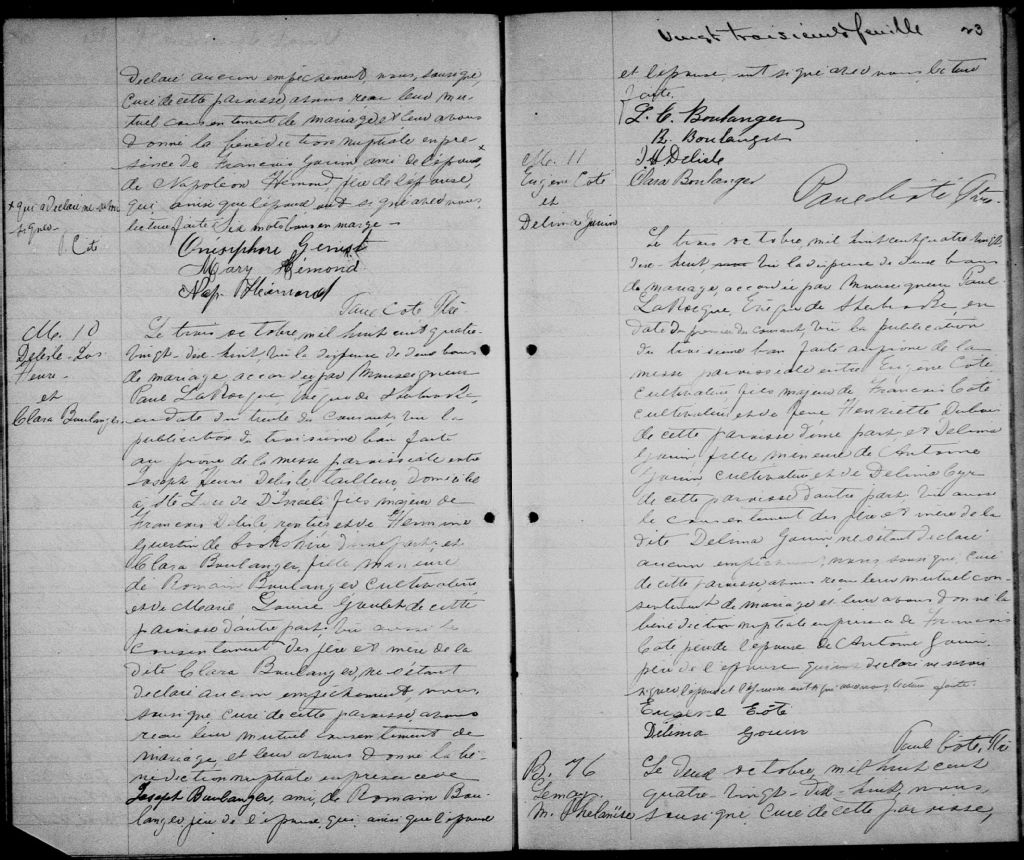 déclaré aucun empêchement, nous, soussigné,
curé de cette paroisse avons reçu leur mu-
tuel consentement de mariage et leur avons
donné la bénédiction nuptiale en pré-
sence de François Gouin ami de l'époux x
de Napoléon Hémond, père de l'épouse,
qui, ainsi que l'épouse ont signé avec nous,
lecture faite. Six mots bons en marge -
x qui a déclaré ne savoir
signer -
P. Coté
Onesiphore Genest
Mary Hémond
Nap. Hémond
Paul Coté Ptre
M. 10
Delisle Jos
Henri -
et
Clara Boulanger
Le trois octobre, mil huit cent quatre-
vingt-dix-huit, vu la dispense de deux bans
de mariage, accordée par Monseigneur
Paul LaRocque, évêque de Sherbrooke,
en date du trente du courant, vu la
publication du troisième ban faite
au prône de la messe paroissiale entre
Joseph Henri Delisle tailleur, domicilié
à Ste Luce de D'Israeli fils majeur de
François Delisle rentier et de Hermine
Guertin de Cookshire d'une part, et
Clara Boulanger, fille mineure
de Romain Boulanger cultivateur
et de Marie Louise Goulet de cette
paroisse d'autre part, vu aussi le
consentement des père et mère de la
dite Clara Boulanger, ne s'étant
déclaré aucun empêchement, nous,
soussigné, curé de cette paroisse avons
reçu leur mutuel consentement de
mariage, et leur avons donné la bé-
nédiction nuptiale en présence de
Joseph Boulanger, ami, de Romain Bou-
langer père de l'épouse, qui ainsi que l'époux
Vingt troisième feuille 23
et l'épouse, ont signé avec nous lecture
faite.
R. Boulanger
J H Delisle
Clara Boulanger
Paul Coté Ptre
M. 11
Eugène Coté
et
Délima Gouin
Le trois octobre, mil huit cent quatre-vingt-
dix-huit, vu la dispense de deux bans
de mariage, accordée par Monseigneur Paul
LaRocque, Evêque de Sherbrooke, en
date du premier du courant, vu la publication
du troisième ban faite au prône de la
messe paroissiale entre Eugène Coté
cultivateur fils majeur de François Coté
cultivateur et de feue Henriette Dubois
de cette paroisse d'une part, et Délima
Gouin fille mineure de Antoine
Gouin cultivateur et de Délima Cyr
de cette paroisse d'autre part. Vu aussi
le consentement des père et mère de la
dite Délima Gouin ne s'étant déclaré
aucun empêchement, nous, soussigné, curé
de cette paroisse, avons reçu leur mutuel con-
sentement de mariage et leur avons donné la
bénédiction nuptiale en présence de François
Coté père de l'époux et Antoine Gouin
père de l'épouse qui ont déclaré ne savoir
signer. l'époux et l'épouse ont signé avec nous, lecture faite.
Eugène Côté
Délima Gouin
Paul Coté, Ptre
B. 76
Lemay
M. Phelanise
Le deux octobre, mil huit cent
quatre-vingt-dix-huit, nous,
soussigné, curé de cette paroisse,